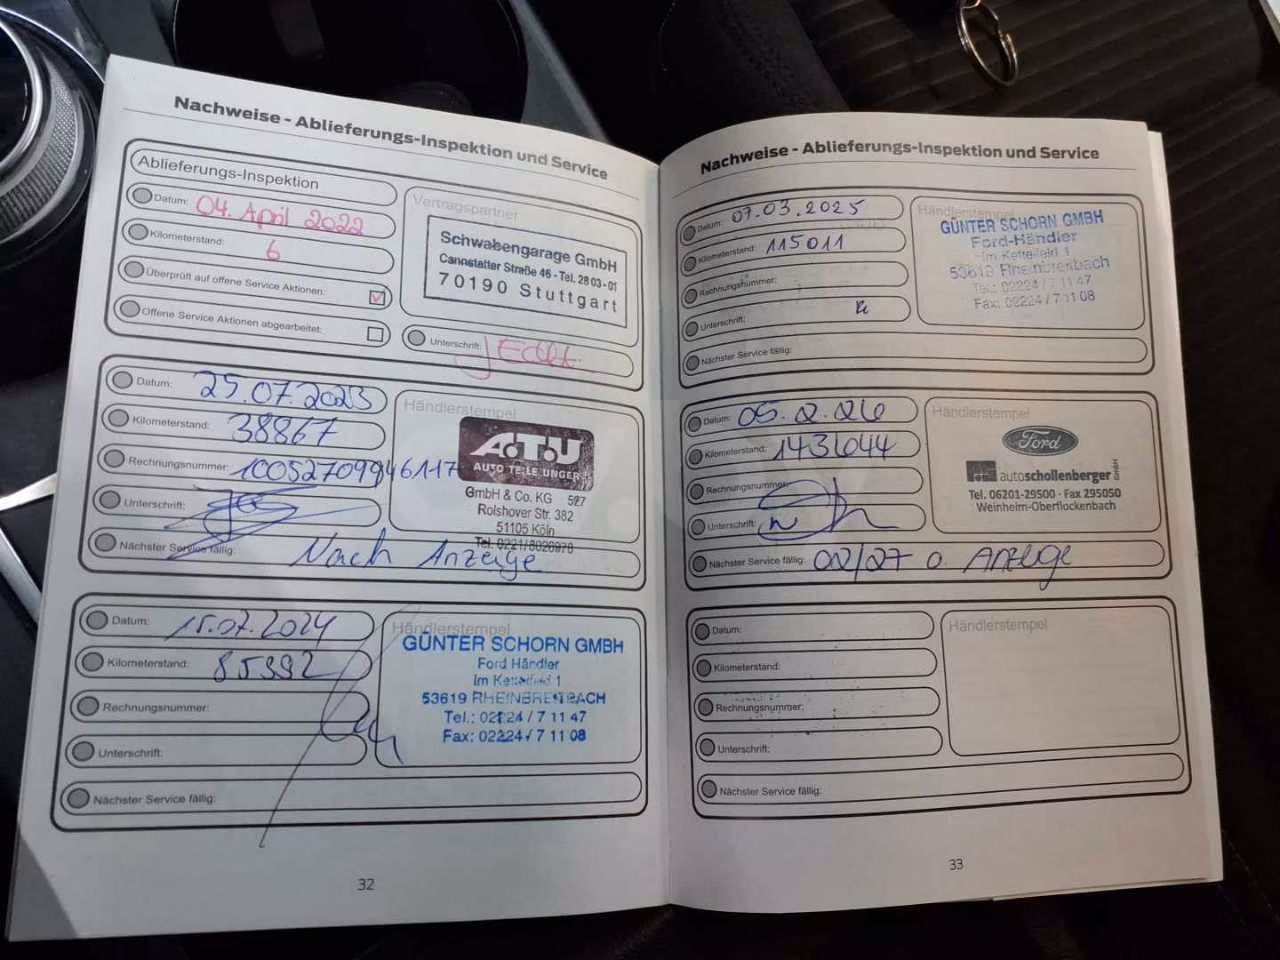 Nachweise - Ablieferungs-Inspektion und Service
Ablieferungs-Inspektion
Datum: 04. April 2022
Kilometerstand: 6
Überprüft auf offene Service Aktionen:
Offene Service Aktionen abgearbeitet:
Vertragspartner
Schwabengarage GmbH
Cannstatter Straße 46 - Tel. 28 03-01
70190 Stuttgart
Unterschrift:
Datum: 25.07.2023
Kilometerstand: 38867
Rechnungsnummer: 10052709946117
Unterschrift:
Nächster Service fällig: Nach Anzeige
Händlerstempel
A.T.U
AUTO TEILE UNGER
GmbH & Co. KG 527
Rolshover Str. 382
51105 Köln
Tel. 0221/8026970
Datum: 15.07.2024
Kilometerstand: 85392
Rechnungsnummer:
Unterschrift:
Nächster Service fällig:
Händlerstempel
GÜNTER SCHORN GMBH
Ford Händler
Im Kettelfeld 1
53619 RHEINBREITBACH
Tel.: 02224 / 7 11 47
Fax: 02224 / 7 11 08
32
Nachweise - Ablieferungs-Inspektion und Service
Datum: 07.03.2025
Kilometerstand: 115011
Rechnungsnummer:
Unterschrift:
Nächster Service fällig:
Händlerstempel
GÜNTER SCHORN GMBH
Ford-Händler
Im Kettelfeld 1
53619 Rheinbreitbach
Tel.: 02224 / 7 11 47
Fax: 02224 / 7 11 08
Datum: 05.2.26
Kilometerstand: 143644
Rechnungsnummer:
Unterschrift:
Nächster Service fällig: 02/27 o. Anzeige
Händlerstempel
Ford
autoschollenberger GmbH
Tel. 06201-29500 · Fax 295050
Weinheim-Oberflockenbach
Datum:
Kilometerstand:
Rechnungsnummer:
Unterschrift:
Nächster Service fällig:
Händlerstempel
33